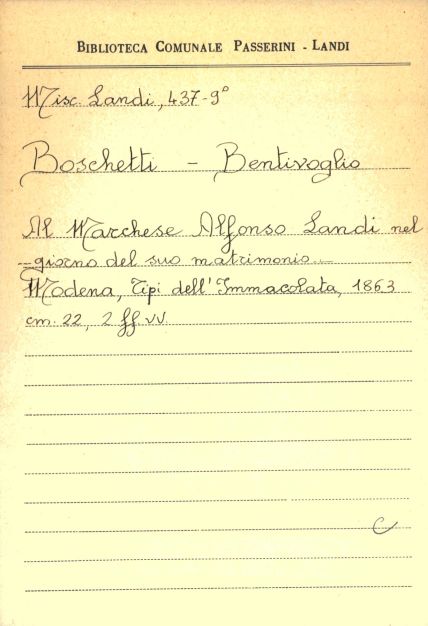 BIBLIOTECA COMUNALE PASSERINI - LANDI
Misc. Landi, 437-9°
Boschetti - Bentivoglio
Al Marchese Alfonso Landi nel
giorno del suo matrimonio.
Modena, Tipi dell'Immacolata, 1863
cm. 22, 2 ff. vv
C